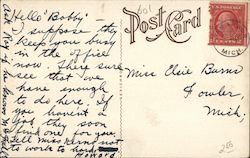 Hello "Bobby" -
I suppose they
keep you busy
in the office
now. I here sure
see that we
have enough
to do here. If
you haven't a
job they soon
find one for you.
Tell Miss Kerns not
to work to hard
Howard
Ask Roy if he knows
Post Card
Miss Elsie Burns
Fowler
Mich.
MICH